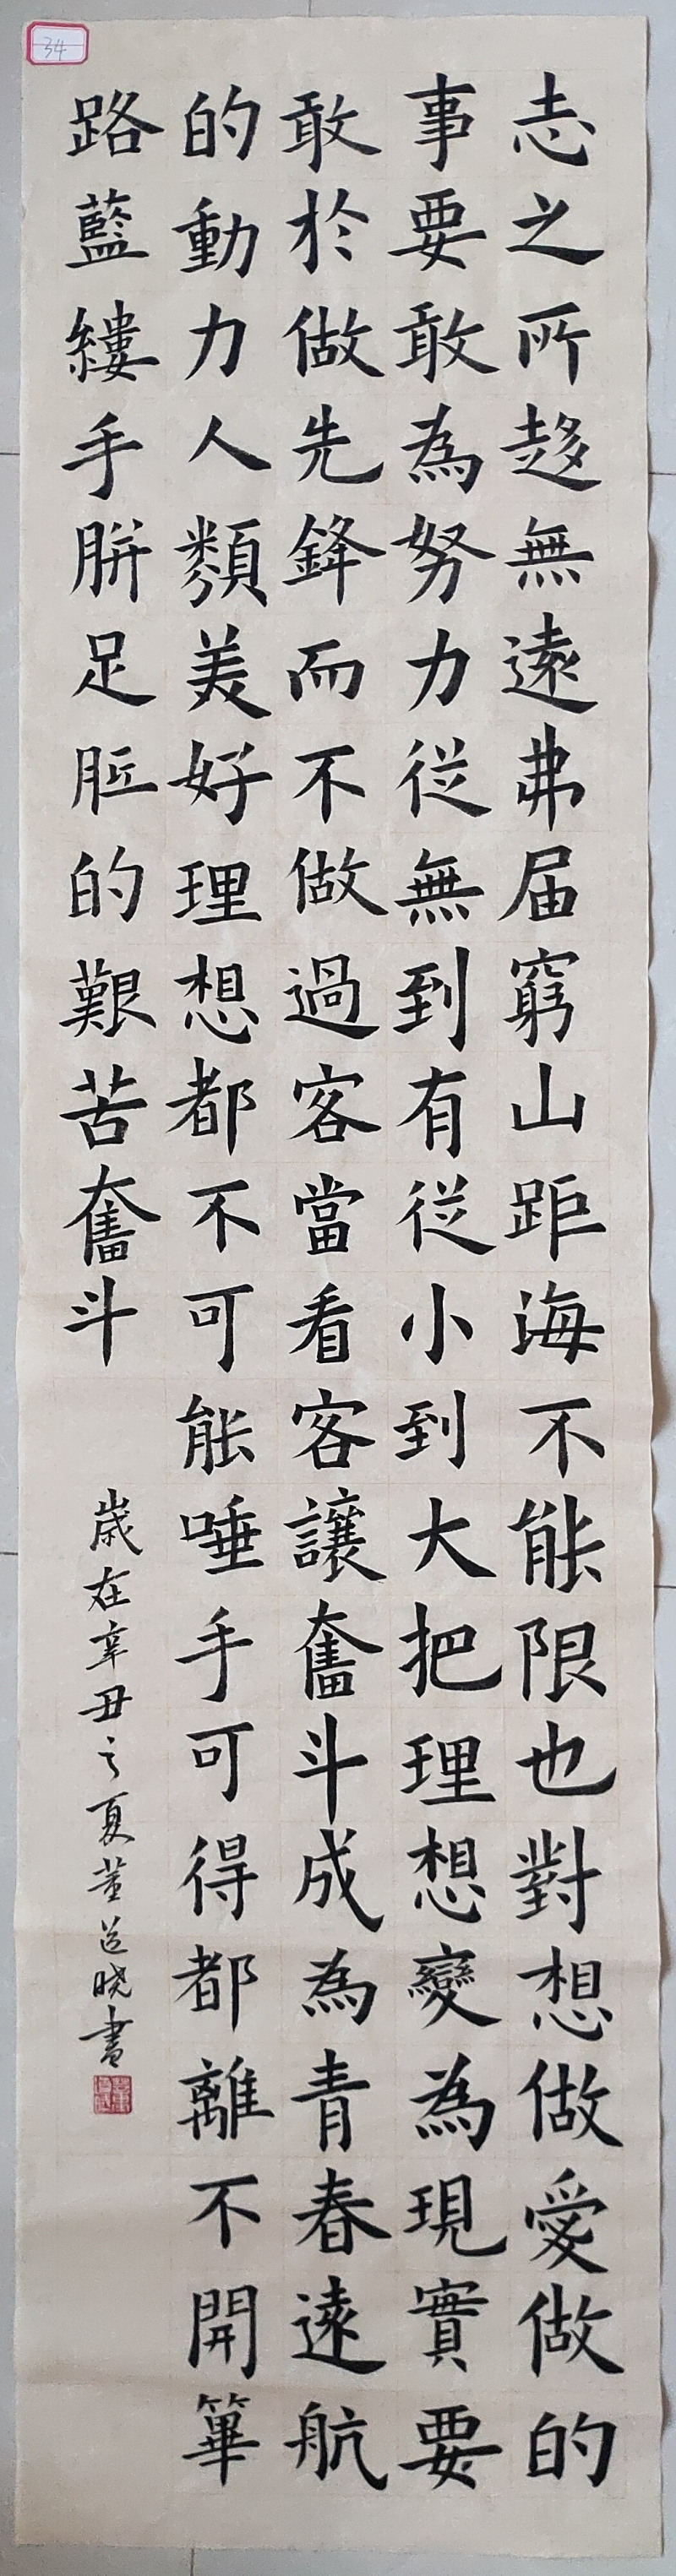 34
志之所趍無遠弗届窮山距海不能限也對想做愛做的
事要敢為努力從無到有從小到大把理想變為現實要
敢於做先鋒而不做過客當看客讓奮斗成為青春遠航
的動力人類美好理想都不可能唾手可得都離不開篳
路藍縷手胼足胝的艱苦奮斗
歲在辛丑之夏董道曉書